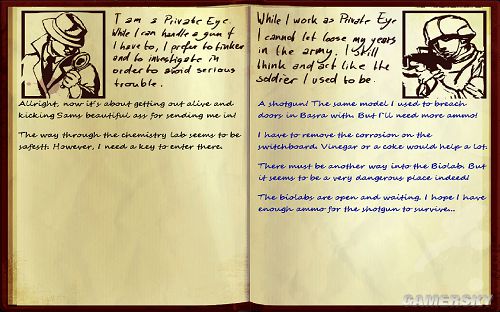 I am a Private Eye.
While I can handle a gun if
I have to, I prefer to tinker
and to investigate in
order to avoid serious
trouble.
Allright, now it's about getting out alive and
kicking Sams beautiful ass for sending me in!
The way through the chemistry lab seems to be
safest!. However, I need a key to enter there.
While I work as Private Eye
I cannot let loose my years
in the army. I still
think and act like the
soldier I used to be.
A shotgun! The same model I used to breach
doors in Basra with. But I'll need more ammo!
I have to remove the corrosion on the
switchboard. Vinegar or a coke would help a lot.
There must be another way into the Biolab. But
it seems to be a very dangerous place indeed!
The biolabs are open and waiting. I hope I have
enough ammo for the shotgun to survive...
GAMERSKY